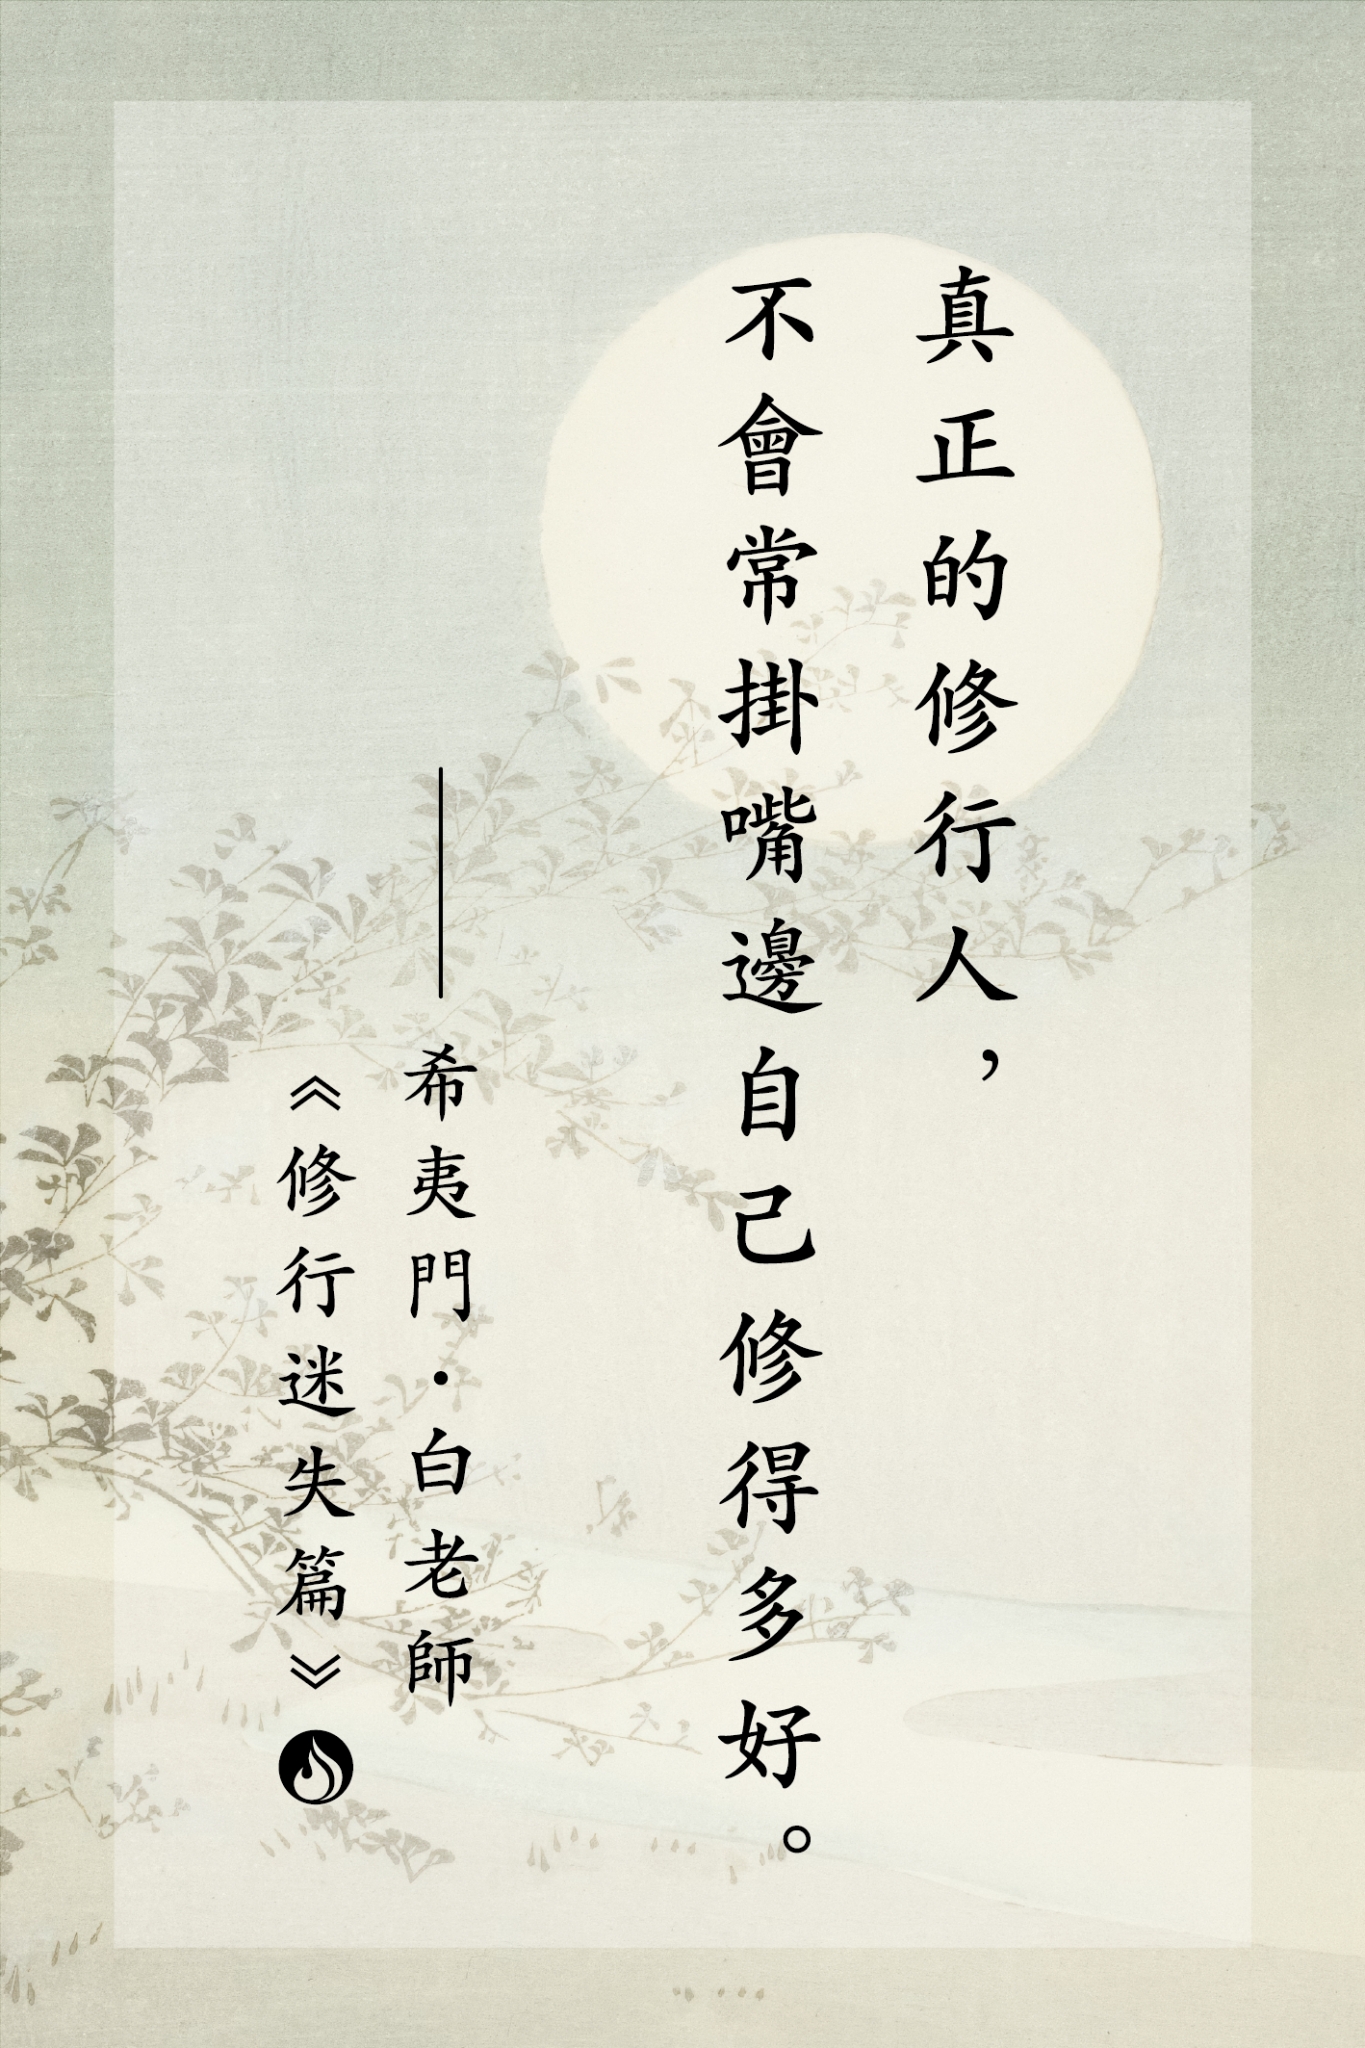 真正的修行人，
不會常掛嘴邊自己修得多好。
——希夷門·白老師
《修行迷失篇》